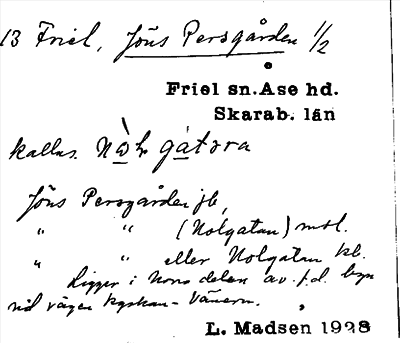 13 Friel, Jöns Persgården 1/2
Friel sn. Åse hd.
Skarab. län
kallas. Nòḷr gatọra
Jöns Persgården jb,
" " (Nolgatan) mtl.
" " eller Nolgatan kb.
Ligger i norra delen av f.d. byn
vid vägen kyrkan - Vänern.
L. Madsen 1928